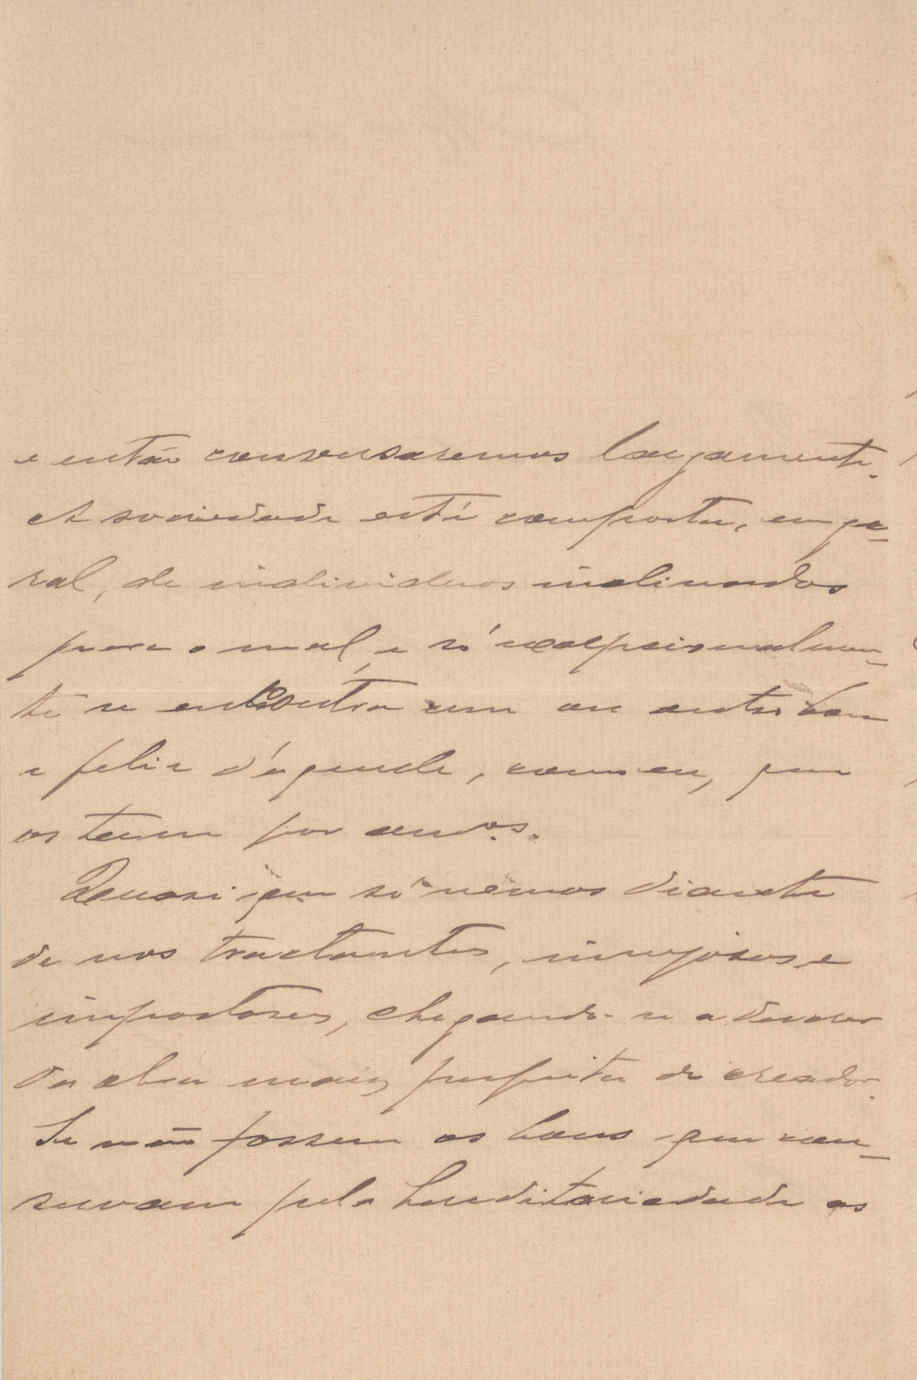 e então conversaremos largamente.
A sociedade está composta, em ge-
ral, de individuos inclinados
para o mal, e só excepcionalmen-
te se encontra um ou outro bom
e feliz d'aquele, como eu, que
os tenha por amos.
Quasi que só vemos diante
de nos tractantes, invejosos e
impostores, chegando-se a duvidar
da obra mais perfeita do creador.
Se não fossem os bons que con-
servam pela hereditariedade os